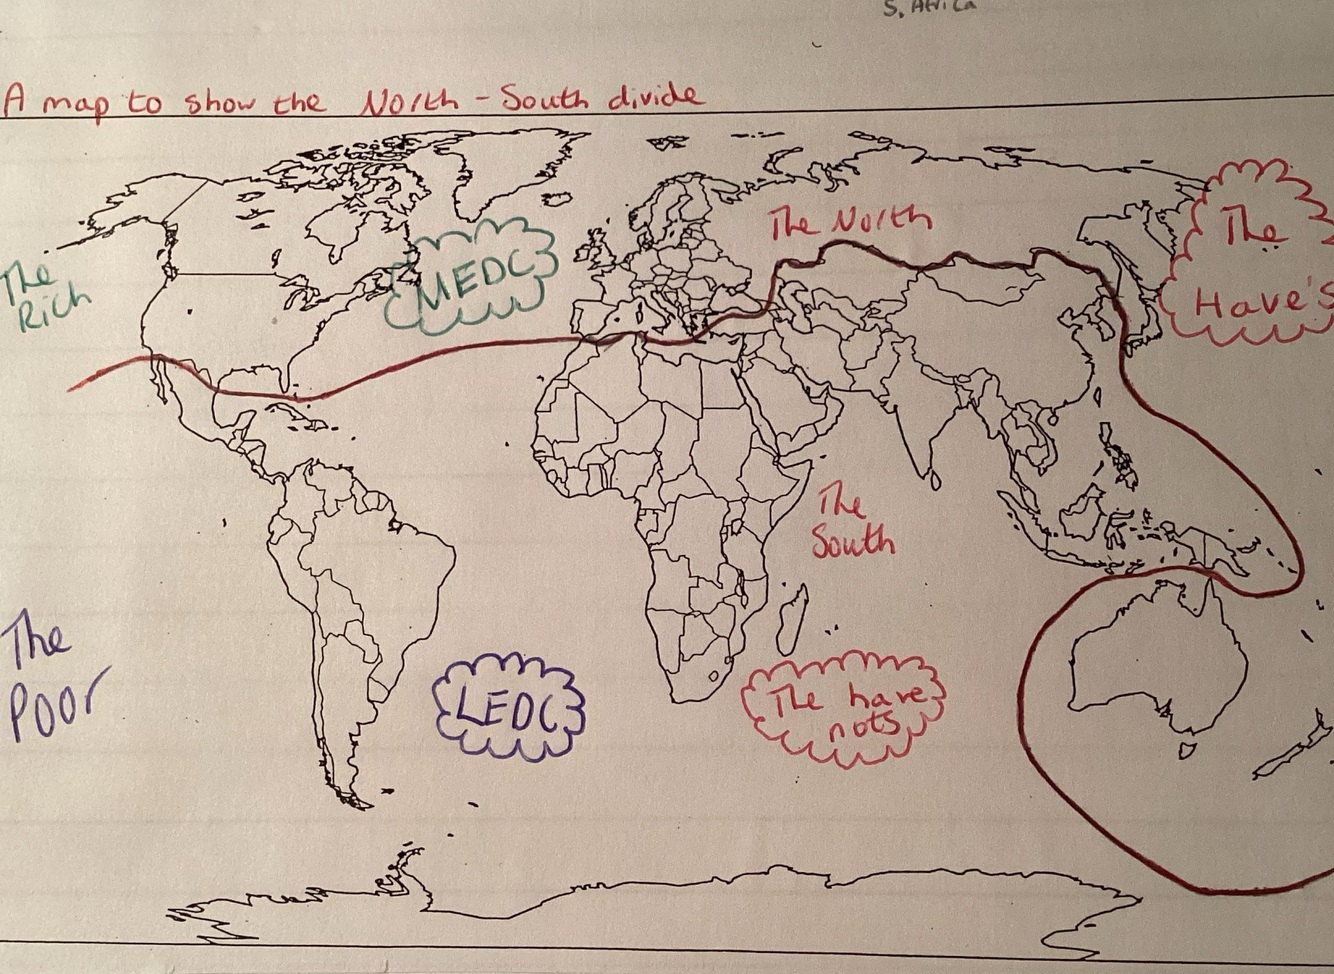 S. Africa
A map to show the North - South divide
The North
The
Have's
MEDC
The
Rich
The
South
The
Poor
LEDC
The have
nots